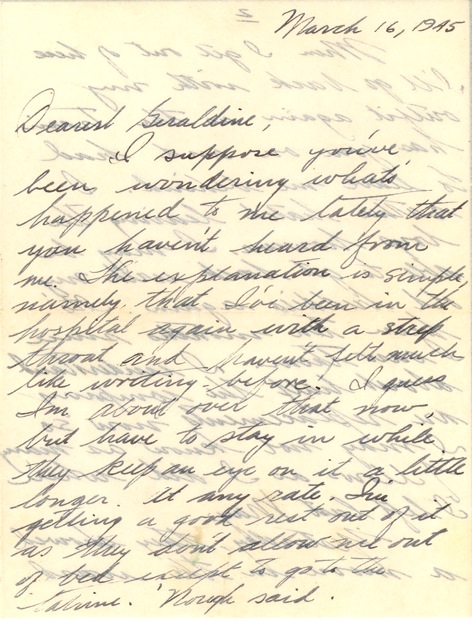 March 16, 1945
Dearest Geraldine,
I suppose you've
been wondering what's
happened to me lately that
you haven't heard from
me. The explanation is simple,
namely that I've been in the
hospital again with a strep
throat and haven't felt much
like writing before. I guess
I'm about over that now,
but have to stay in while
they keep an eye on it a little
longer. At any rate, I'm
getting a good rest out of it
as they don't allow me out
of bed except to go to the
latrine. 'Nough said.